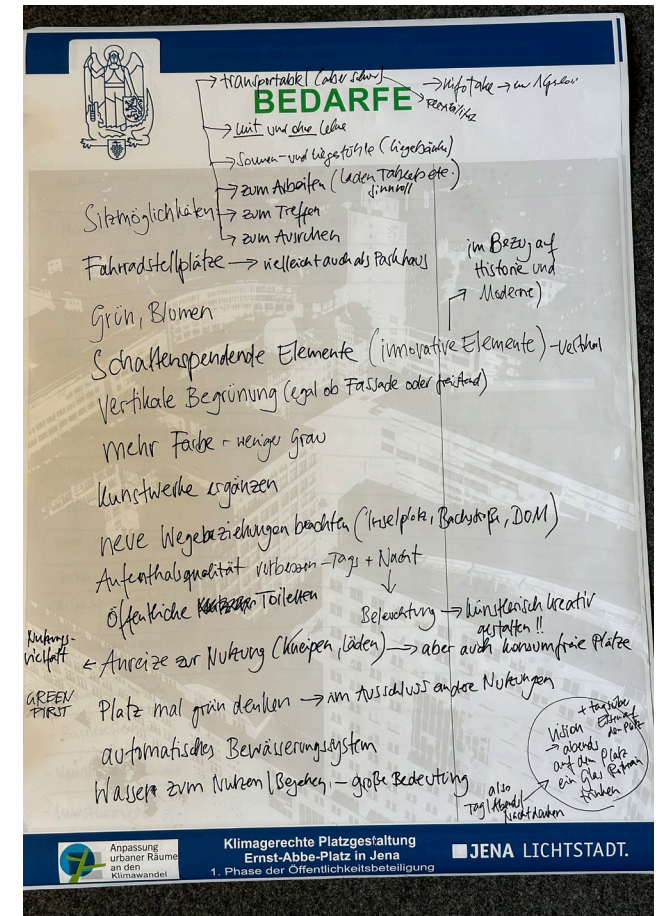 BEDARFE
→ transportabel (aber schwer)
→ Infotake →
→ Flexibilität
→ mit und ohne Lehne
→ Sonnen- und Liegestühle (Liegebänke)
→ zum Arbeiten (Laden Tablet etc.
sinnvoll
Sitzmöglichkeiten → zum Treffen
→ zum Ausruhen
Fahrradstellplätze → vielleicht auch als Parkhaus
im Bezug auf
Historie und
Moderne)
Grün, Blumen
Schattenspendende Elemente (innovative Elemente) - vertikal
Vertikale Begrünung (egal ob Fassade oder freistand)
mehr Farbe - weniger Grau
Kunstwerke ergänzen
neue Wegebeziehungen beachten (Inselplatz, Bachstraße, DOM)
Aufenthaltsqualität verbessern - Tags + Nacht
öffentliche Toiletten
Beleuchtung → künstlerisch kreativ
gestalten !!
Nutzungs-
vielfalt
← Anreize zur Nutzung (Kneipen, Läden) → aber auch konsumfreie Plätze
GREEN
FIRST
Platz mal grün denken → im Ausschluss andere Nutzungen
automatisches Bewässerungssystem
Wasser zum Nutzen / Begehen, - große Bedeutung
also
Tag / Abend /
Nacht denken
+ tagsüber
Vision
→ abends
auf dem Platz
ein Glas
trinken
Anpassung
urbaner Räume
an den
Klimawandel
Klimagerechte Platzgestaltung
Ernst-Abbe-Platz in Jena
1. Phase der Öffentlichkeitsbeteiligung
JENA LICHTSTADT.